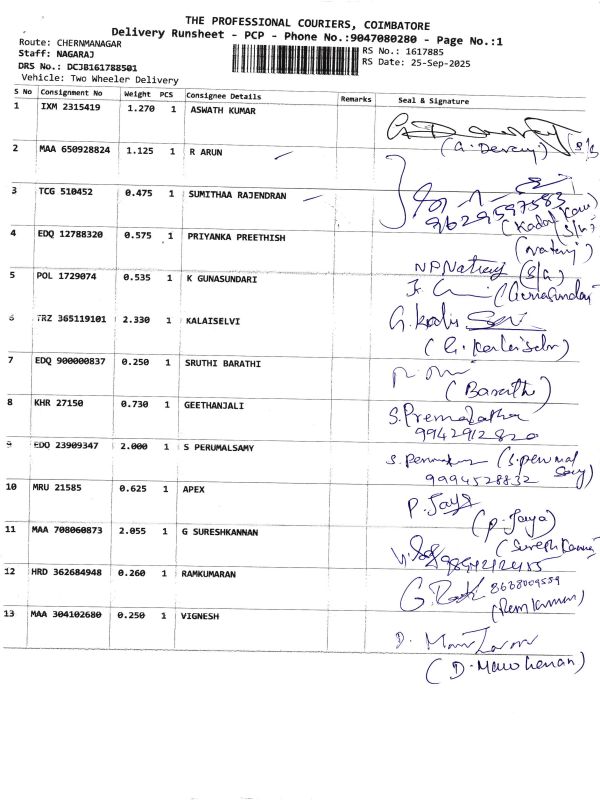 THE PROFESSIONAL COURIERS, COIMBATORE
Delivery Runsheet - PCP - Phone No.:9047080280 - Page No.:1
Route: CHERNMANAGAR
Staff: NAGARAJ
DRS No.: DCJB161788501
Vehicle: Two Wheeler Delivery
RS No.: 1617885
RS Date: 25-Sep-2025
S No Consignment No Weight PCS Consignee Details Remarks Seal & Signature
1 IXM 2315419 1.270 1 ASWATH KUMAR
2 MAA 650928824 1.125 1 R ARUN
3 TCG 510452 0.475 1 SUMITHAA RAJENDRAN
9629597583
4 EDQ 12788320 0.575 1 PRIYANKA PREETHISH
5 POL 1729074 0.535 1 K GUNASUNDARI
6 TRZ 365119101 2.330 1 KALAISELVI
7 EDQ 900000837 0.250 1 SRUTHI BARATHI
(Barathi)
8 KHR 27150 0.730 1 GEETHANJALI
S. Premalatha
9942912820
9 EDO 23909347 2.000 1 S PERUMALSAMY
(S. perumal Samy)
9994528832
10 MRU 21585 0.625 1 APEX
P. Jaya
(P. Jaya)
11 MAA 708060873 2.055 1 G SURESHKANNAN
(Suresh Kannan)
12 HRD 362684948 0.260 1 RAMKUMARAN
8638009559
(Ramkumar)
13 MAA 304102680 0.250 1 VIGNESH
(D. Manoharan)